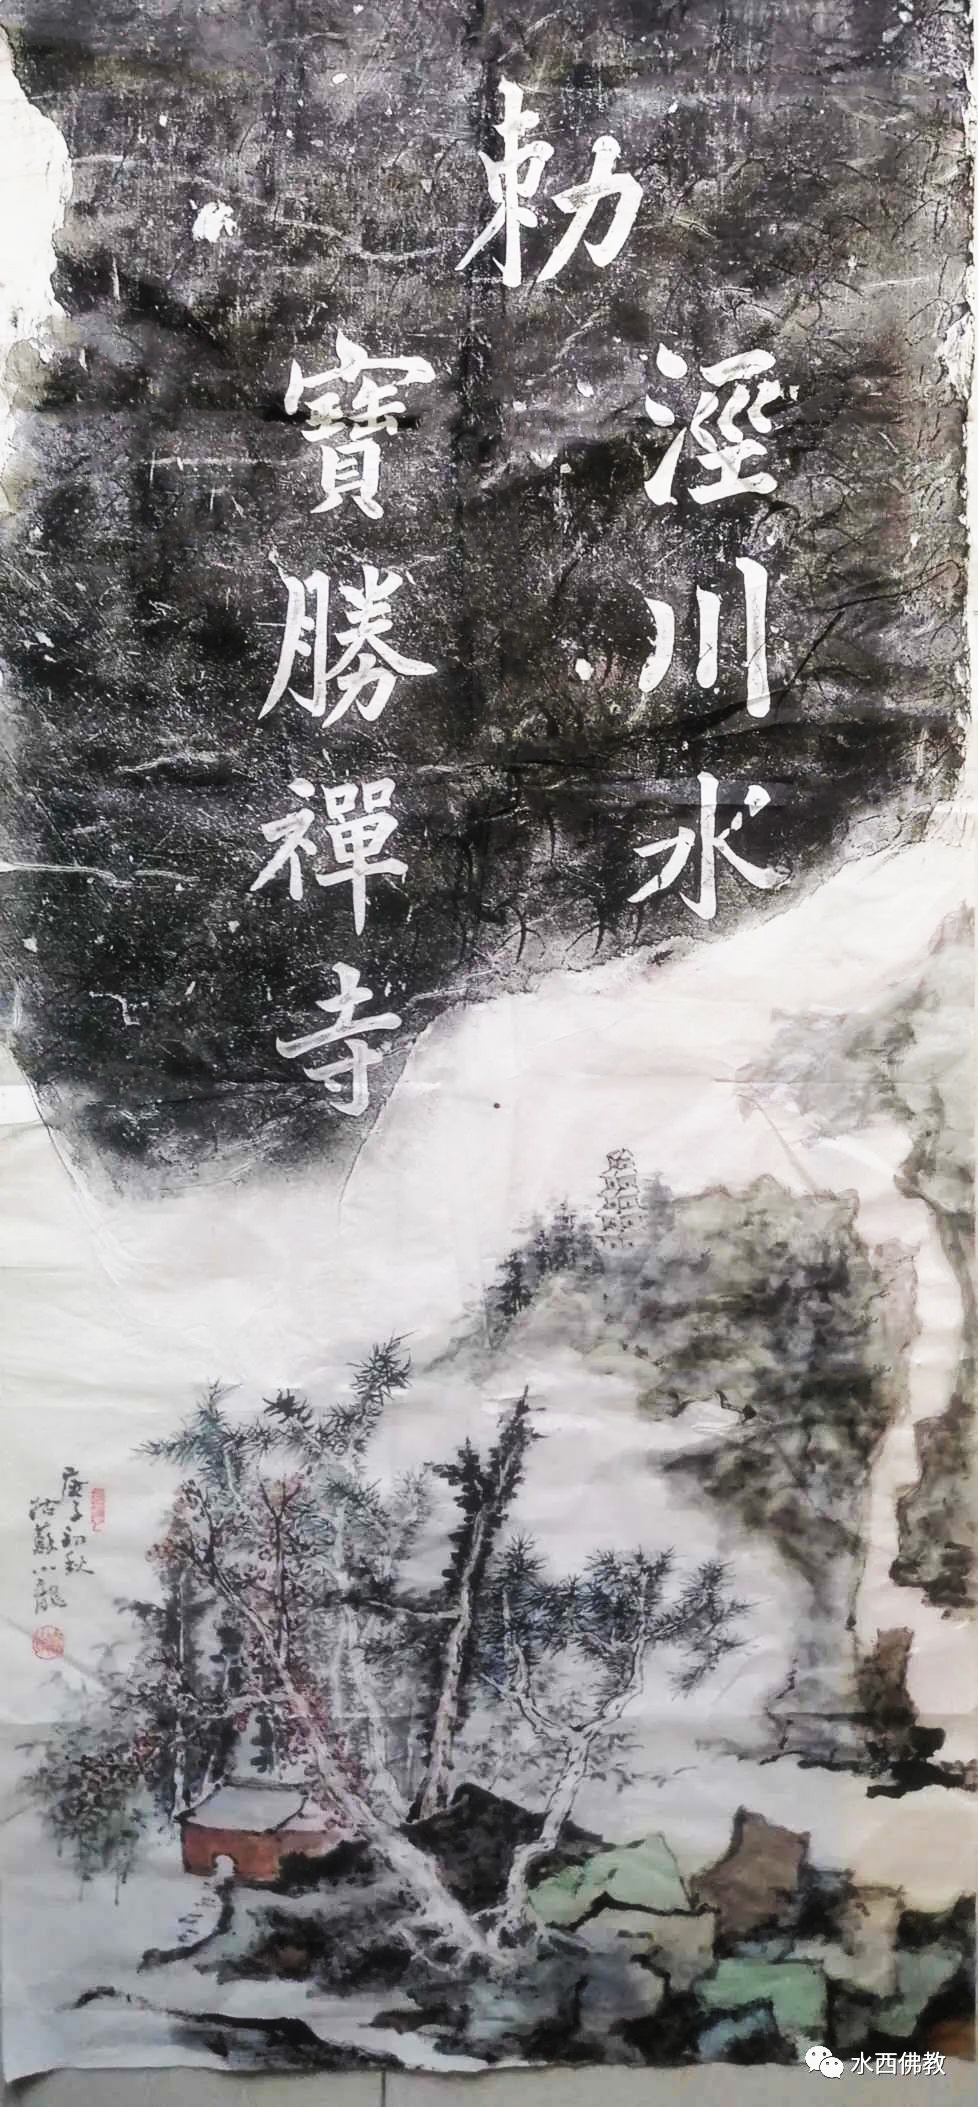 勅
涇川水
寶勝禪寺
庚子初秋
姑蘇小龍
水西佛教